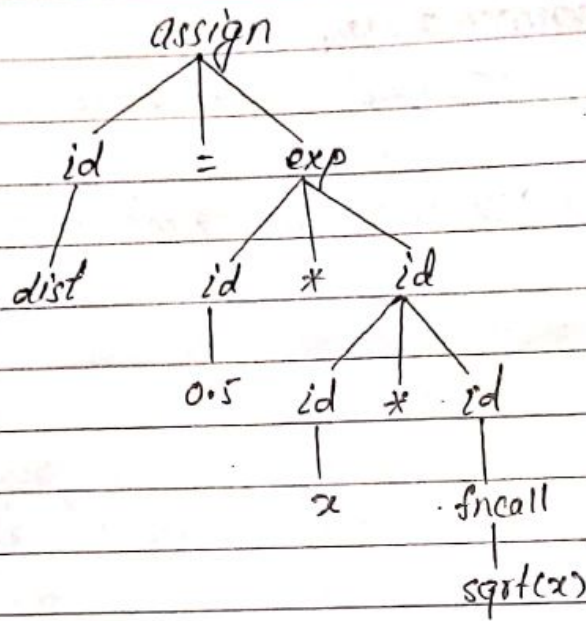 assign
id = exp
dist id * id
0.5 id * id
x fncall
sqrt(x)